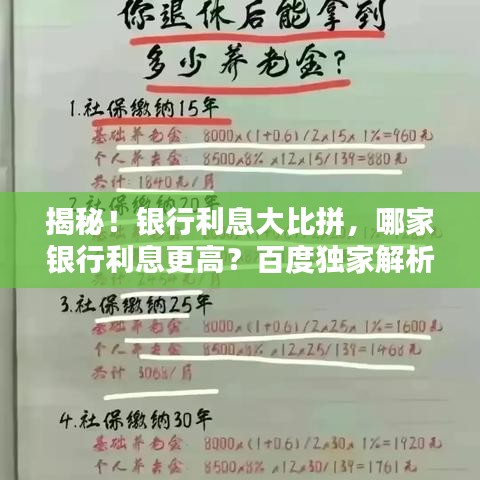 你退休后能拿到
多少养老金？
1.社保缴纳15年
基础养老金: 8000×(1+0.6)/2×15×1%=960元
个人养老金: 8500×8%×12×15/139=880元
共计: 1840元/月
揭秘！银行利息大比拼，哪家
银行利息更高？百度独家解析
3.社保缴纳25年
基础养老金: 8000×(1+0.6)/2×25×1%=1600元
个人养老金: 8500×8%×12×25/139=1468元
共计: 3068/月
4.社保缴纳30年
基础养老金: 8000×(1+0.6)/2×30×1%=1920元
个人养老金: 8500×8%×12×30/139=1761元